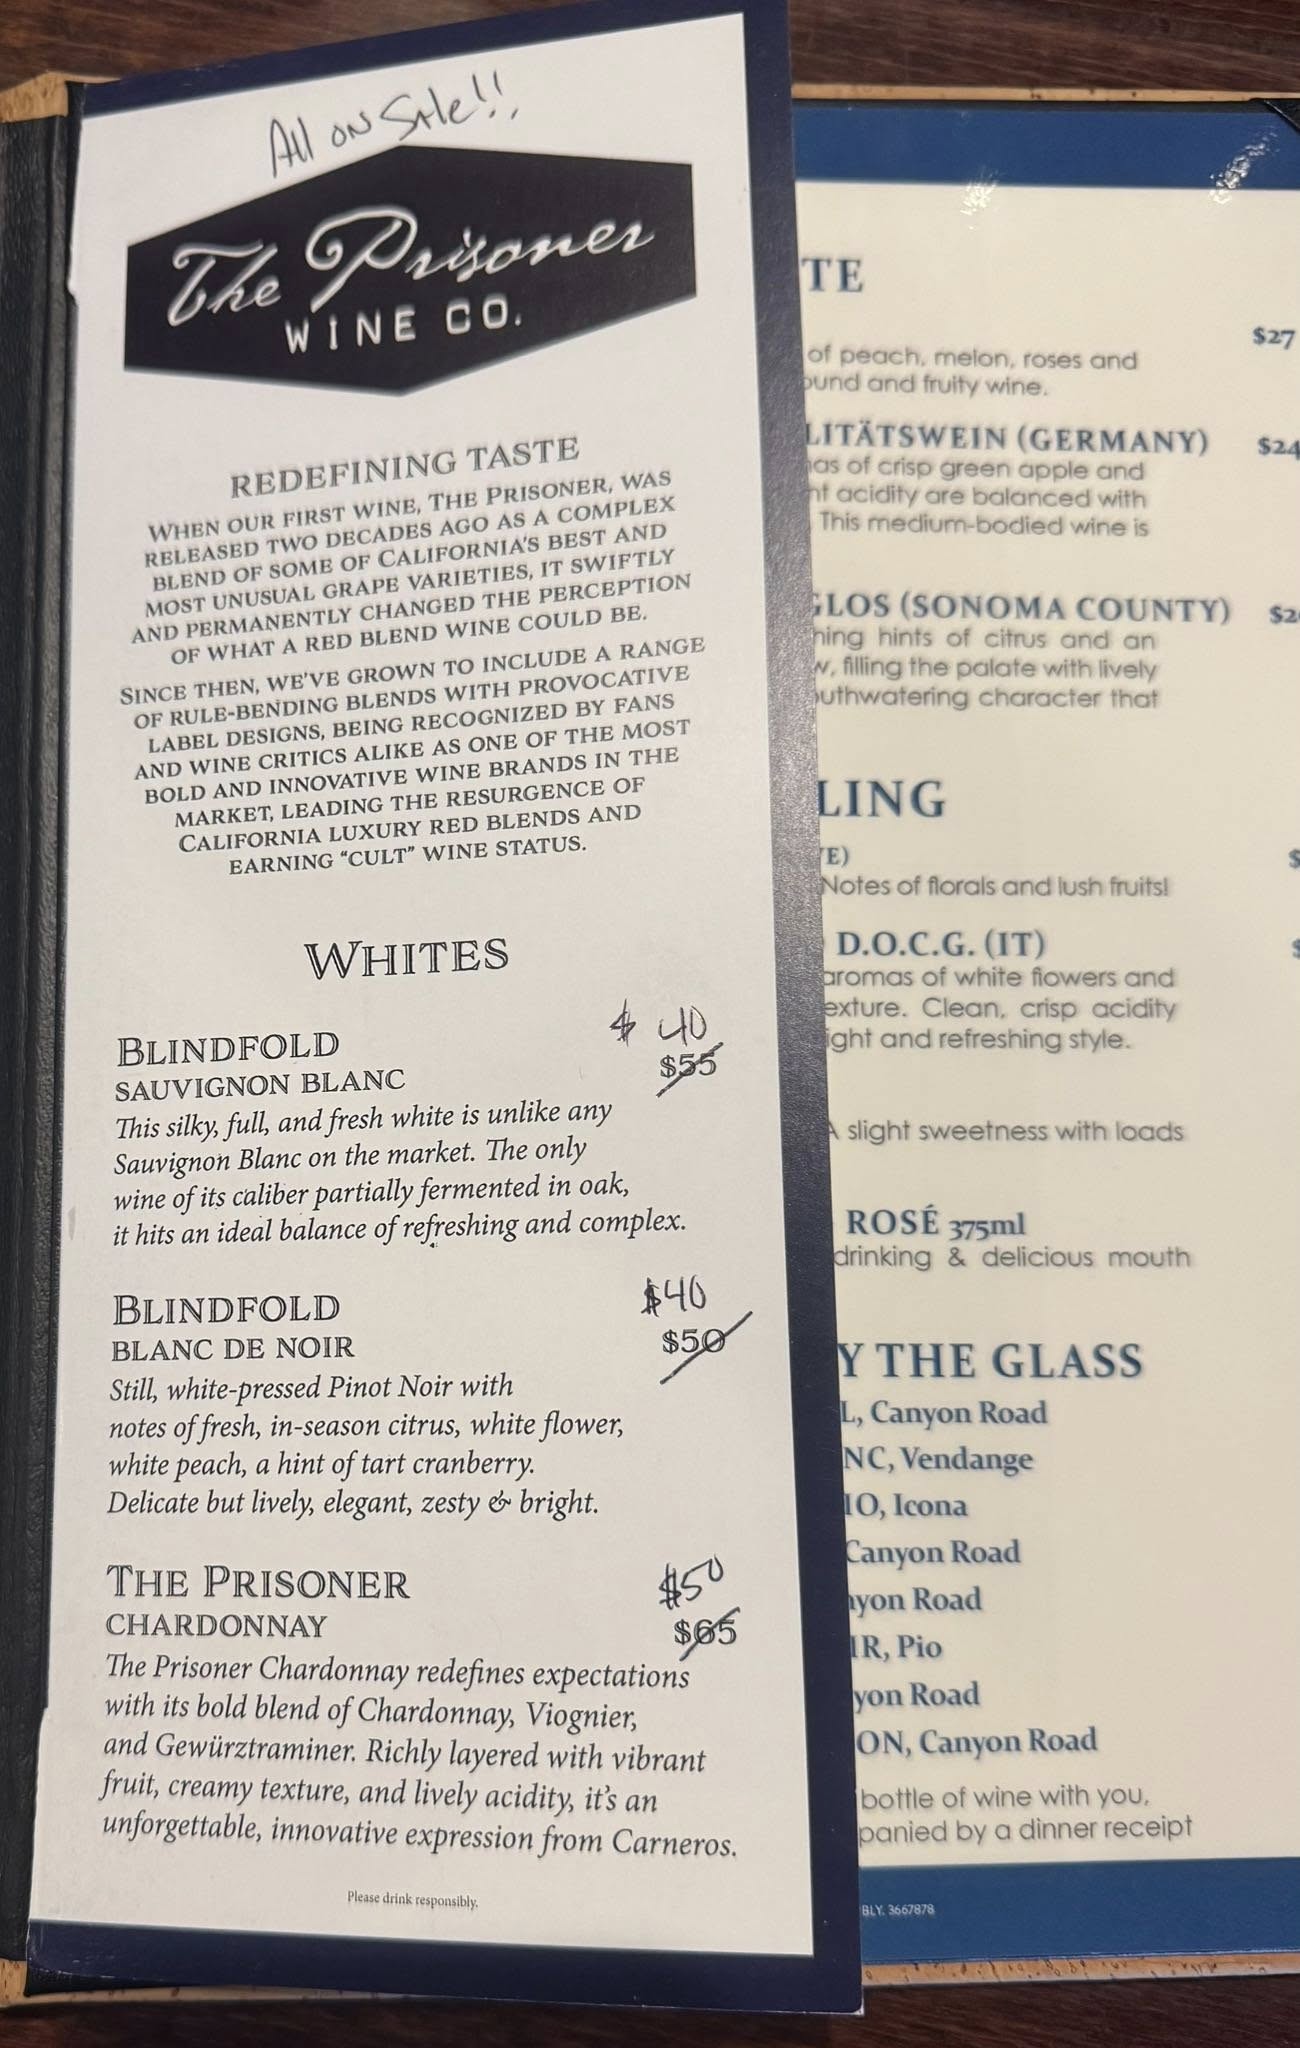 All on Sale!!
The Prisoner
WINE CO.
REDEFINING TASTE
WHEN OUR FIRST WINE, THE PRISONER, WAS
RELEASED TWO DECADES AGO AS A COMPLEX
BLEND OF SOME OF CALIFORNIA'S BEST AND
MOST UNUSUAL GRAPE VARIETIES, IT SWIFTLY
AND PERMANENTLY CHANGED THE PERCEPTION
OF WHAT A RED BLEND WINE COULD BE.
SINCE THEN, WE'VE GROWN TO INCLUDE A RANGE
OF RULE-BENDING BLENDS WITH PROVOCATIVE
LABEL DESIGNS, BEING RECOGNIZED BY FANS
AND WINE CRITICS ALIKE AS ONE OF THE MOST
BOLD AND INNOVATIVE WINE BRANDS IN THE
MARKET, LEADING THE RESURGENCE OF
CALIFORNIA LUXURY RED BLENDS AND
EARNING "CULT" WINE STATUS.
WHITES
$ 40
BLINDFOLD
$55
SAUVIGNON BLANC
This silky, full, and fresh white is unlike any
Sauvignon Blanc on the market. The only
wine of its caliber partially fermented in oak,
it hits an ideal balance of refreshing and complex.
$40
BLINDFOLD
$50
BLANC DE NOIR
Still, white-pressed Pinot Noir with
notes of fresh, in-season citrus, white flower,
white peach, a hint of tart cranberry.
Delicate but lively, elegant, zesty & bright.
$50
THE PRISONER
$65
CHARDONNAY
The Prisoner Chardonnay redefines expectations
with its bold blend of Chardonnay, Viognier,
and Gewürztraminer. Richly layered with vibrant
fruit, creamy texture, and lively acidity, it's an
unforgettable, innovative expression from Carneros.
Please drink responsibly.
TE
$27
of peach, melon, roses and
ound and fruity wine.
LITÄTSWEIN (GERMANY) $24
as of crisp green apple and
nt acidity are balanced with
This medium-bodied wine is
GLOS (SONOMA COUNTY) $2
ning hints of citrus and an
w, filling the palate with lively
outhwatering character that
LING
VE) $
Notes of florals and lush fruits!
D.O.C.G. (IT) $
aromas of white flowers and
exture. Clean, crisp acidity
ight and refreshing style.
A slight sweetness with loads
ROSÉ 375ml
drinking & delicious mouth
Y THE GLASS
L, Canyon Road
NC, Vendange
IO, Icona
Canyon Road
nyon Road
IR, Pio
yon Road
ON, Canyon Road
bottle of wine with you,
panied by a dinner receipt
BLY. 3667878